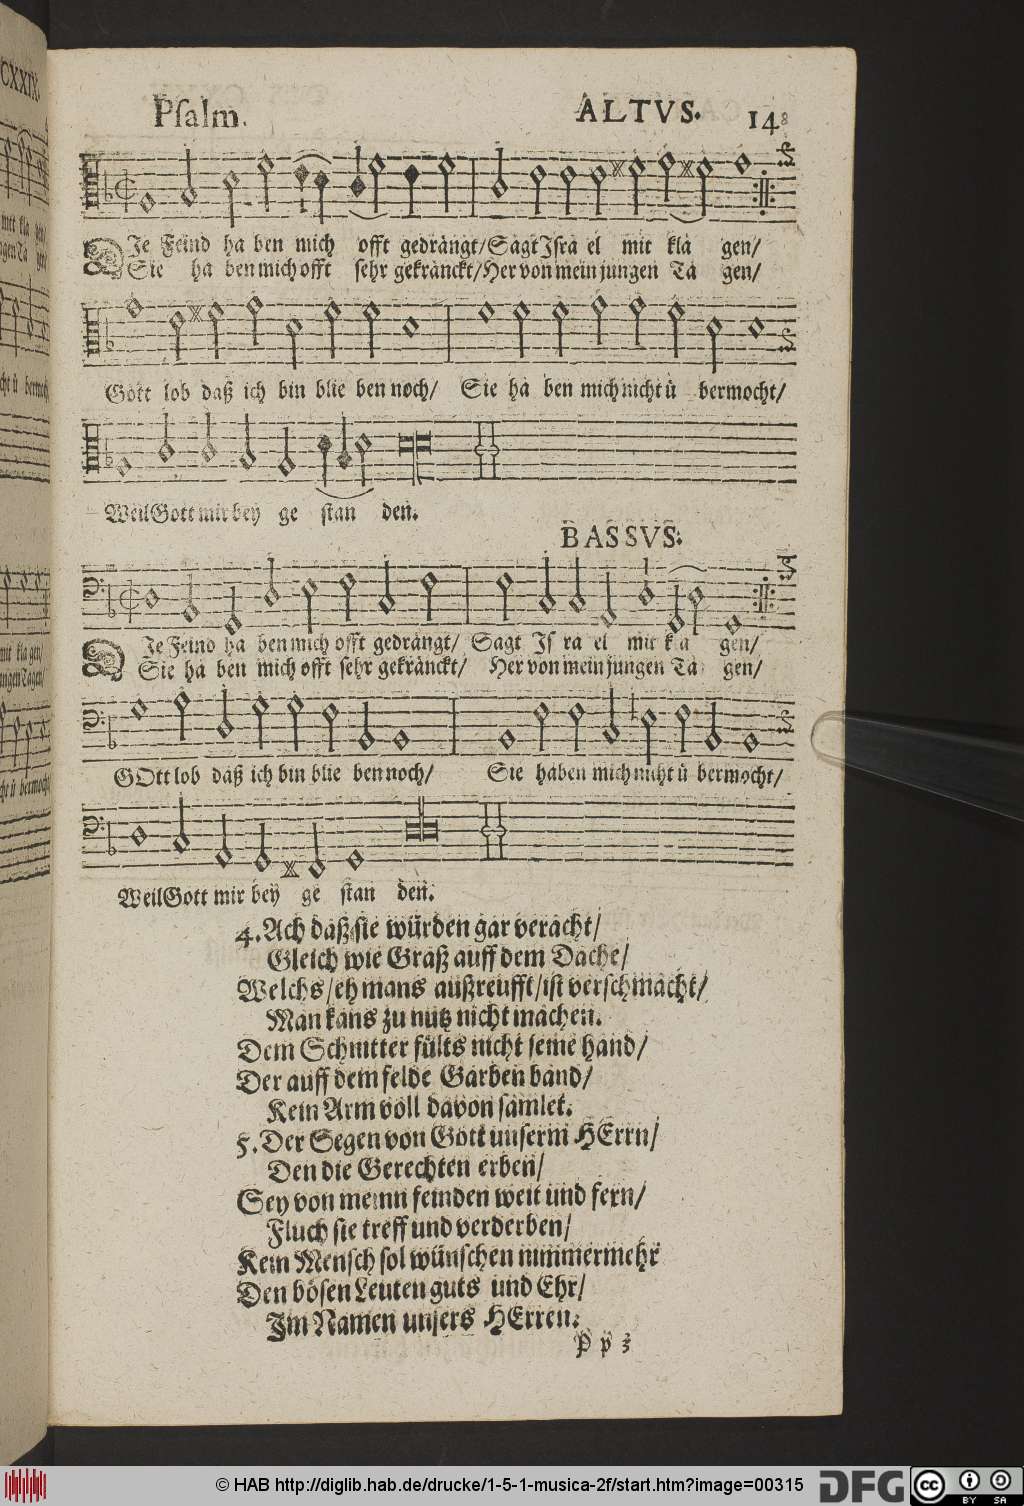 CXXIX.
Psalm. ALTVS. 148
DIe Feind ha ben mich offt gedrängt/ Sagt Jsra el mit kla gen/
Sie ha ben mich offt sehr gekränckt/ Her von mein jungen Ta gen/
Gott lob daß ich bin blie ben noch/ Sie ha ben mich nicht ü bermocht/
Weil Gott mir bey ge stan den.
BASSVS.
DIe Feind ha ben mich offt gedrängt/ Sagt Js ra el mit kla gen/
Sie ha ben mich offt sehr gekränckt/ Her von mein jungen Ta gen/
GOtt lob daß ich bin blie ben noch/ Sie haben mich nicht ü bermocht/
Weil Gott mir bey ge stan den.
4. Ach daß sie würden gar veracht/
Gleich wie Graß auff dem Dache/
Welchs/ eh mans außreufft/ ist verschmacht/
Man kans zu nutz nicht machen.
Dem Schnitter fülts nicht seine hand/
Der auff dem felde Garben band/
Kein Arm voll davon samlet.
5. Der Segen von Gott unserm HErrn/
Den die Gerechten erben/
Sey von meinn feinden weit und fern/
Fluch sie treff und verderben/
Kein Mensch sol wünschen nimmermehr
Den bösen Leuten guts und Ehr/
Jm Namen unsers HErren.
P p 3
© HAB http://diglib.hab.de/drucke/1-5-1-musica-2f/start.htm?image=00315 DFG cc BY SA